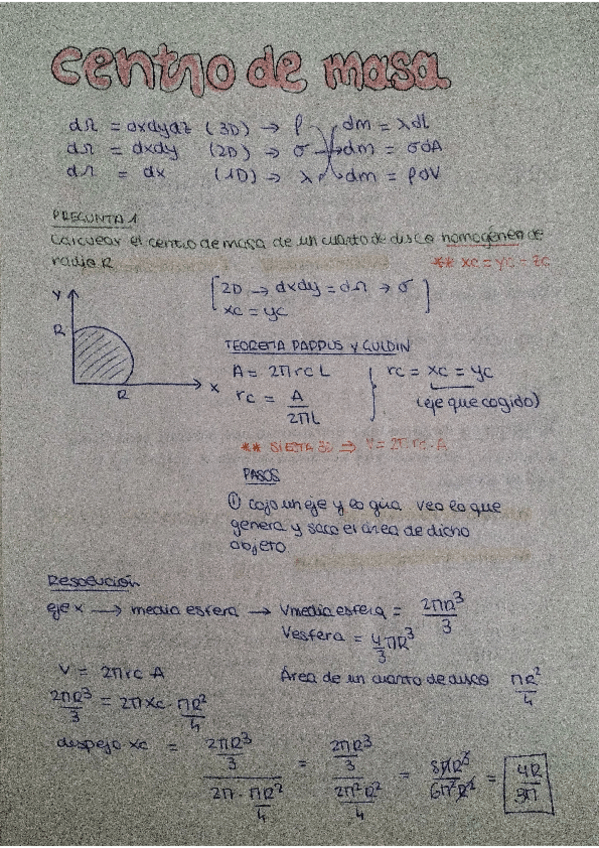 centro de masa
dΩ = dxdydz (3D) → ρ dm = λdl
dΩ = dxdy (2D) → σ → dm = σdA
dΩ = dx (1D) → λ dm = ρdV
PREGUNTA 1
Calcular el centro de masa de un cuarto de disco homogéneo de
radio R ** xc = yc = zc
[2D → dxdy = dΩ → σ]
xc = yc
Y
R
X
R
TEOREMA PAPPUS Y GULDIN
A = 2πrc L
rc = A / 2πL
rc = xc = yc
(eje que cogido)
** SI ESTA 3D ⇒ V = 2π·rc·A
PASOS
① cojo un eje y lo gira veo lo que
genera y saco el área de dicho
objeto
Resolución
eje x → media esfera → Vmedia esfera = 2πR³/3
Vesfera = 4/3 πR³
V = 2πrc A Área de un cuarto de disco πR²/4
2πR³/3 = 2πxc · πR²/4
despejo xc = (2πR³/3) / (2π · πR²/4) = (2πR³/3) / (2π²R²/4) = 8πR³/6π²R² = 4R/3π